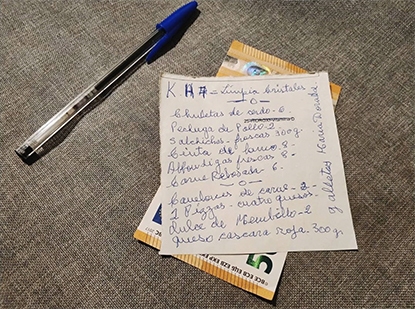 K H7 = Limpia Cristales
Chuletas de cerdo - 6
Pechuga de Pollo - 2
Salchichas - frescas 300g.
Cinta de lomo - 8 -
Albondigas frescas 8 -
Carne Rebosada - 6.
Canelones de carne - 2 -
2 Pizzas - cuatro quesos.
dulce de Membrillo - 2
queso cascara roja - 300 g.
galletas Maria Dorada
5
BCE ECB EZB EKP